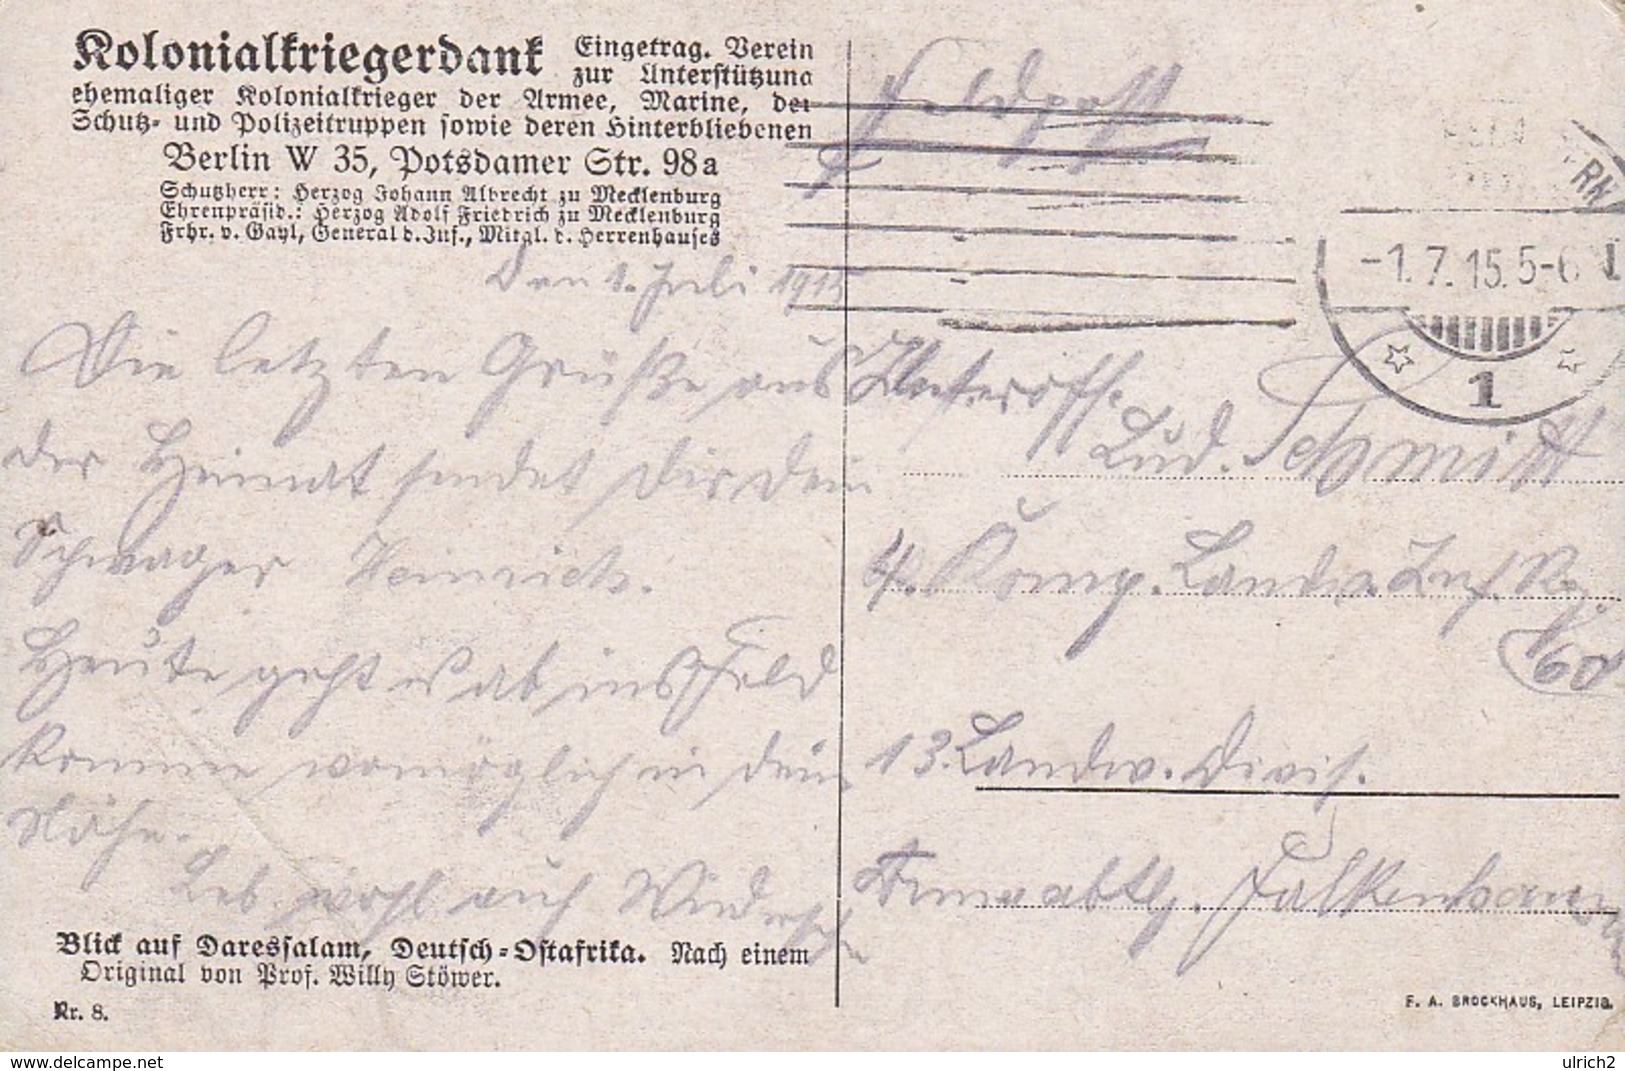 Kolonialkriegerdank Eingetrag. Verein
zur Unterstützung
ehemaliger Kolonialkrieger der Armee, Marine, der
Schutz- und Polizeitruppen sowie deren Hinterbliebenen
Berlin W 35, Potsdamer Str. 98a
Schutzherr: Herzog Johann Albrecht zu Mecklenburg
Ehrenpräsid.: Herzog Adolf Friedrich zu Mecklenburg
Frhr. v. Gayl, General d. Inf., Mitgl. d. Herrenhauses
Den 1. Juli 1915
Die letzten Grüße aus
der Heimat sendet Dir Dein
Schwager Heinrich.
Heute geht es ab ins Feld
komme womöglich in deine
Nähe.
Leb wohl auf Wiedersehn
Blick auf Daressalam, Deutsch-Ostafrika. Nach einem
Original von Prof. Willy Stöwer.
Nr. 8.
Feldpost
-1.7.15.5-6
1
Unteroff.
Lud. Schmitt
4. Komp. Landw. Inf. Reg.
60
13. Landw. Divis.
Armeeabtlg. Falkenhausen
F. A. BROCKHAUS, LEIPZIG.
delcampe.net
ulrich2